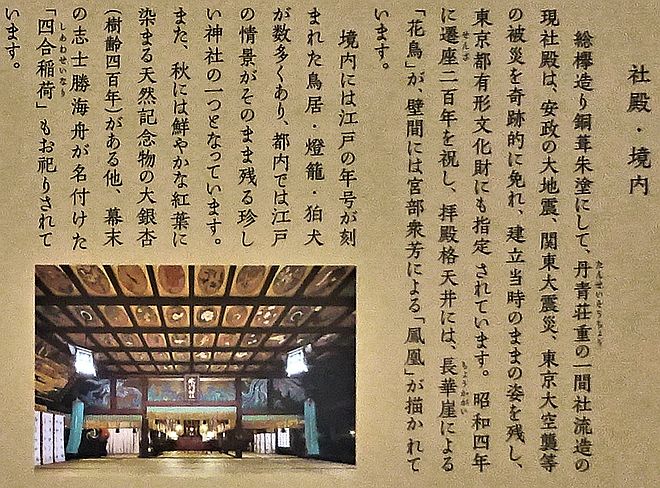 社殿・境内
総欅造り銅葺朱塗にして、丹青荘重の一間社流造の
たんせいそうちょう
現社殿は、安政の大地震、関東大震災、東京大空襲等
の被災を奇跡的に免れ、建立当時のままの姿を残し、
東京都有形文化財にも指定されています。昭和四年
に遷座二百年を祝し、拝殿格天井には、長華崖による
せんざ
ちょうかがい
「花鳥」が、壁間には宮部衆芳による「鳳凰」が描かれて
います。
境内には江戸の年号が刻
まれた鳥居・燈籠・狛犬
が数多くあり、都内では江戸
の情景がそのまま残る珍し
い神社の一つとなっています。
また、秋には鮮やかな紅葉に
染まる天然記念物の大銀杏
(樹齢四百年)がある他、幕末
の志士勝海舟が名付けた
「四合稲荷」もお祀りされて
しあわせいなり
います。